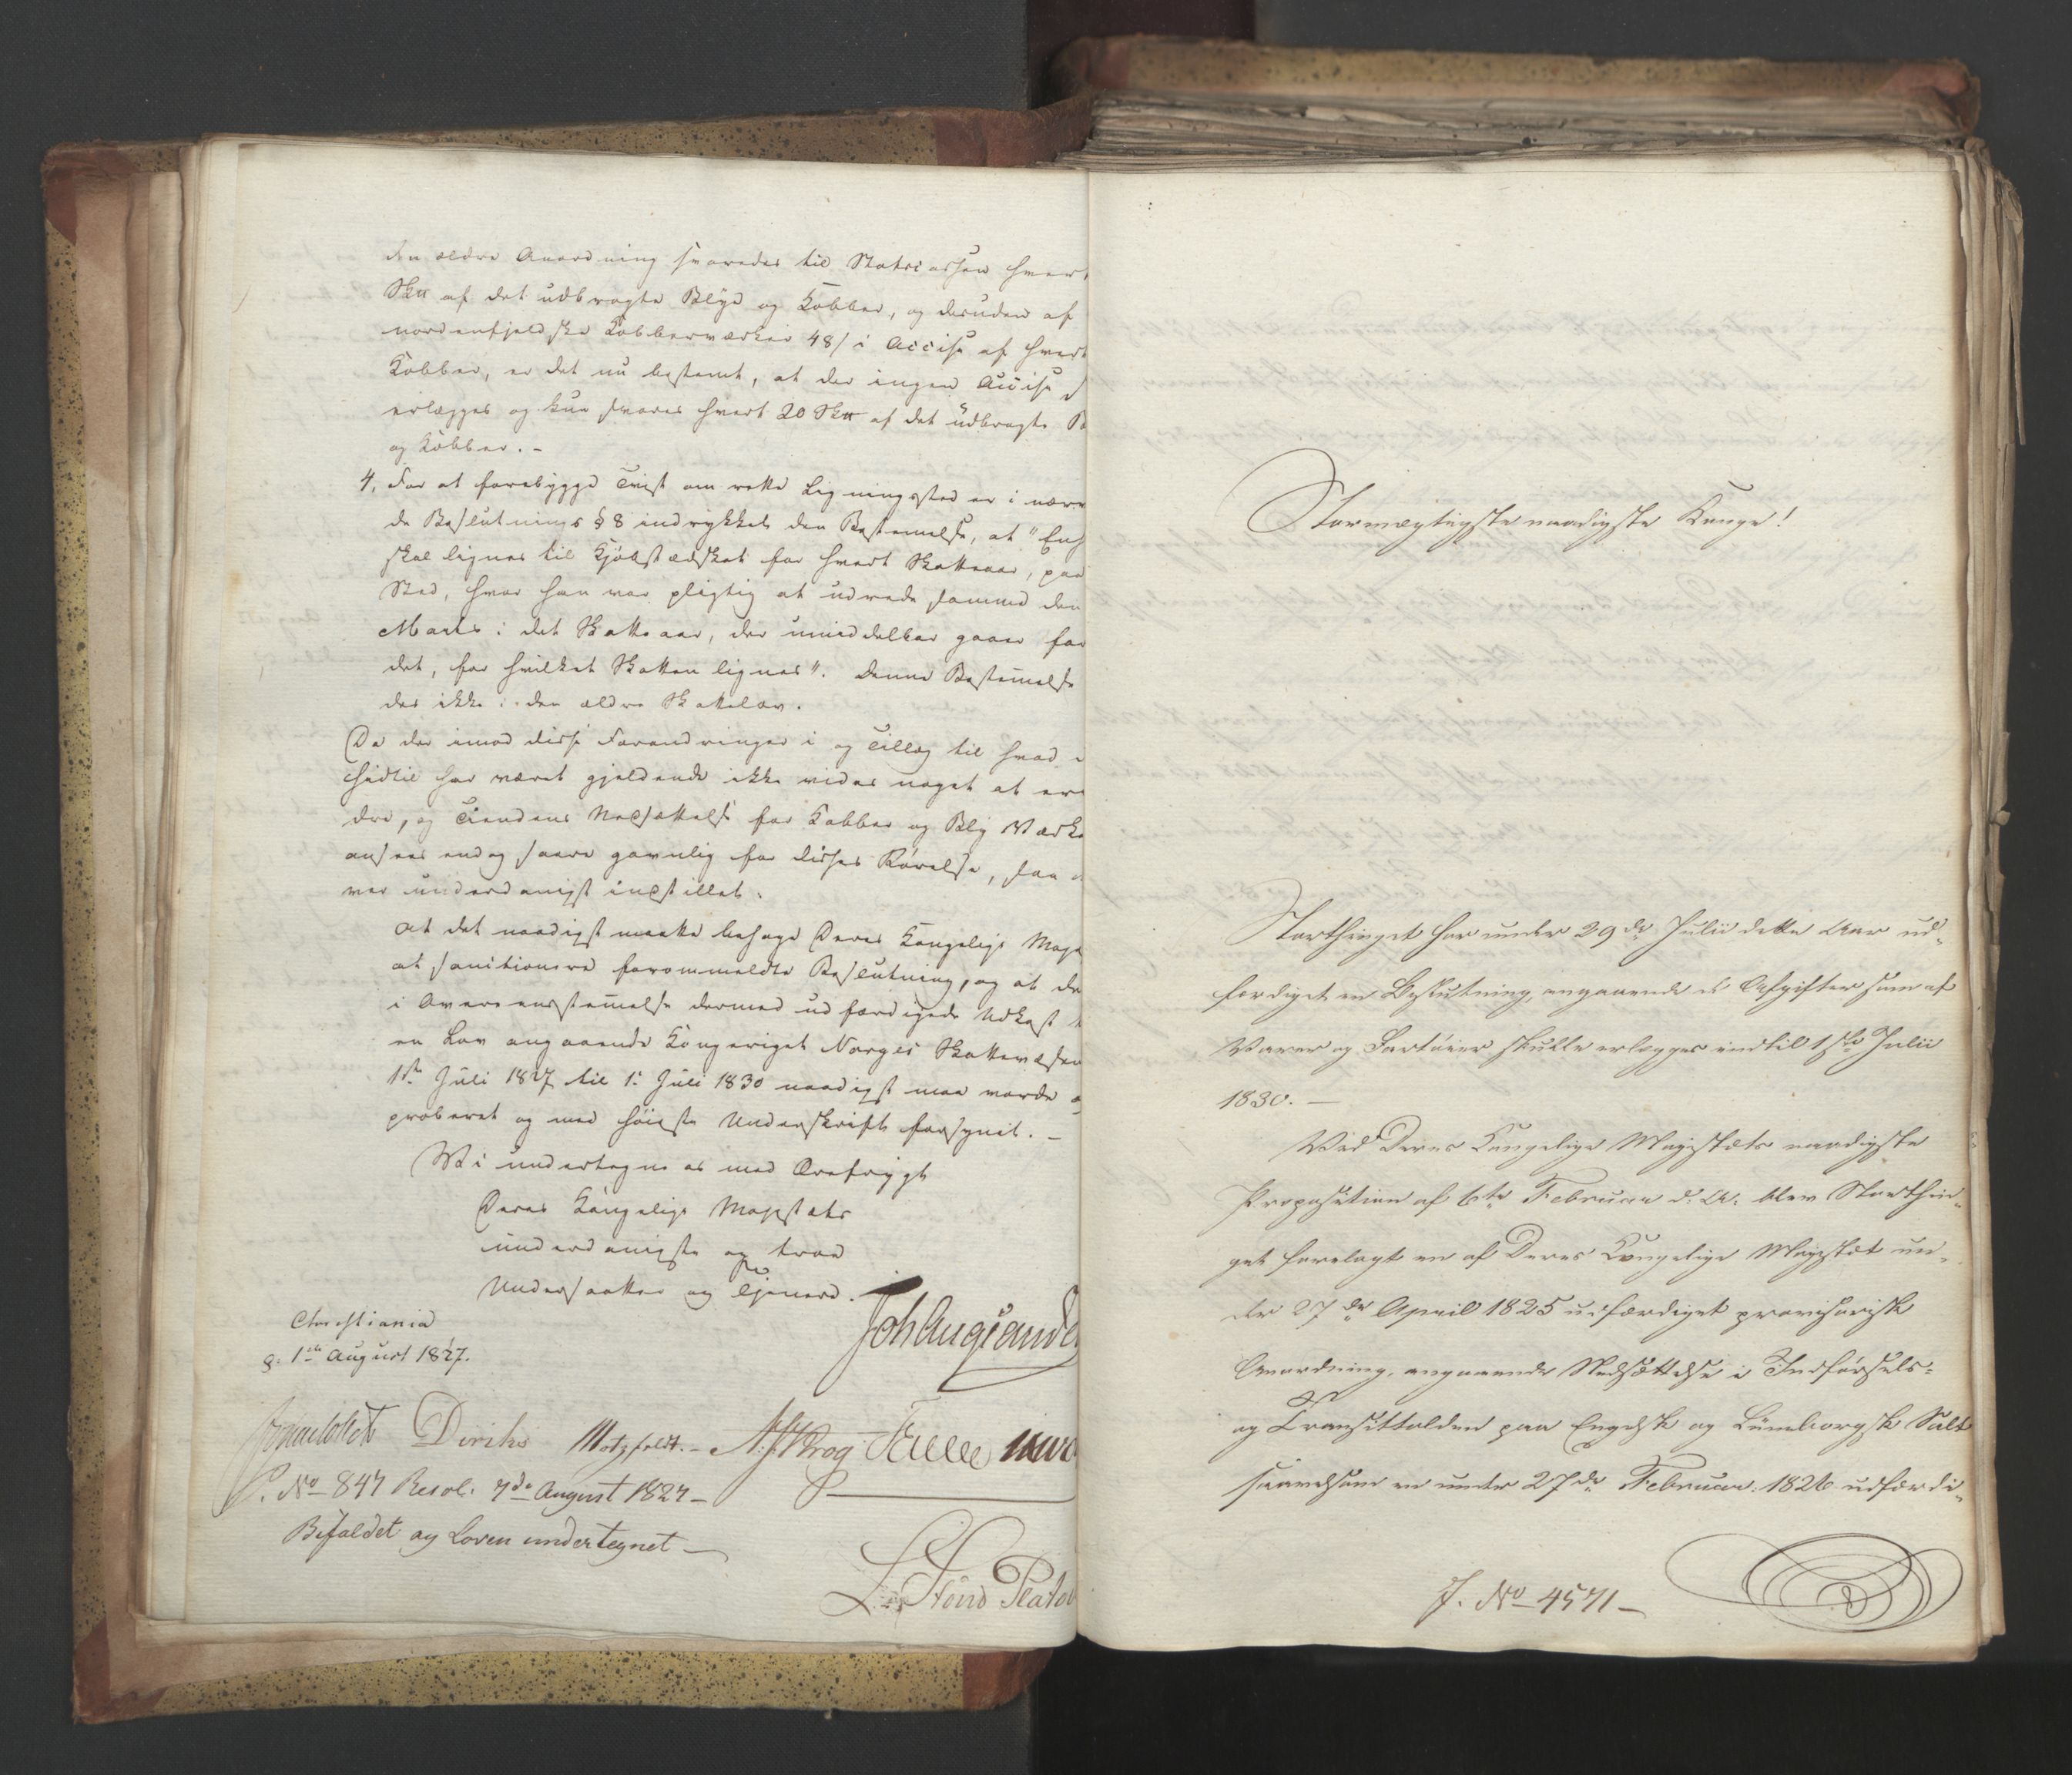 den ældre Anordning svaredes til Statscassen hvert
Sk℔ af det udbragte Blye og Kobber, og desuden af
nordenfjeldske Kobberværker 48/ i Accise af hvert
Kobber, er det nu bestemt, at der ingen Accise
erlægges og kun svares hvert 20 Sk℔ af det udbragte
og Kobber. -
4, For at forebygge Tvist om rette Ligningssted er i nær
de Beslutnings § 8 indrykket den Bestemmelse, at "En
skal lignes til Kjöbstædskat for hvert Skatteaar, paa
Sted, hvor han var pligtig at udrede samme den
Marts i det Skatteaar, der umiddelbar gaaer for
det, for hvilket Skatten lignes". Denne Bestemelse
des ikke i den ældre Skattelov.
Da der imod disse Forandringer i og Tillæg til hvad
hidtil har været gjeldende ikke vides noget at er
dre, og Tiendens Nedsættelse for Kobber og Bly Værke
ansees endog saare gavnlig for disses Rörelse, saa
ver underdanigst indstillet:
at det naadigst maatte behage Deres Kongelige Maje
at sanctionere foranmeldte Beslutning, og at de
i Overeensstemelse dermed udfærdigede Udkast
en Lov angaaende Kongeriget Norges Skattevæsen
1ste Juli 1827 til 1. Juli 1830 naadigst maa vorde
proberet og med höieste Underskrift forsynet. -
Vi undertegne os med Ærefrygt
Deres Kongelige Majestæts
underdanigste og troe
Undersaatter og Tjenere.
Christiania
d. 1ste August 1827.
Joh Aug Sande
Diriks Motzfeldt. - Krog
P. No 847 Resol. 7de August 1827 -
Bifaldet og Loven undertegnet -
Stormægtigste naadigste Konge!
Storthinget har under 29de Julii dette Aar ud-
færdiget en Beslutning, angaaende de Afgifter som af
Varer og Fartöier skulle erlægges indtil 1ste Julii
1830. -
Ved Deres Kongelige Majestæts naadigste
Proposition af 6te Februar d. A. blev Storthin-
get forelagt en af Deres Kongelige Majestæt un-
der 27de April 1825 udfærdiget provisorisk
Anordning, angaaende Nedsættelse i Indförsels-
og Transittolden paa Engelsk og Lüneborgsk Salt
saavelsom en under 27de Februar 1826 udfærdi-
J. No 4571 -